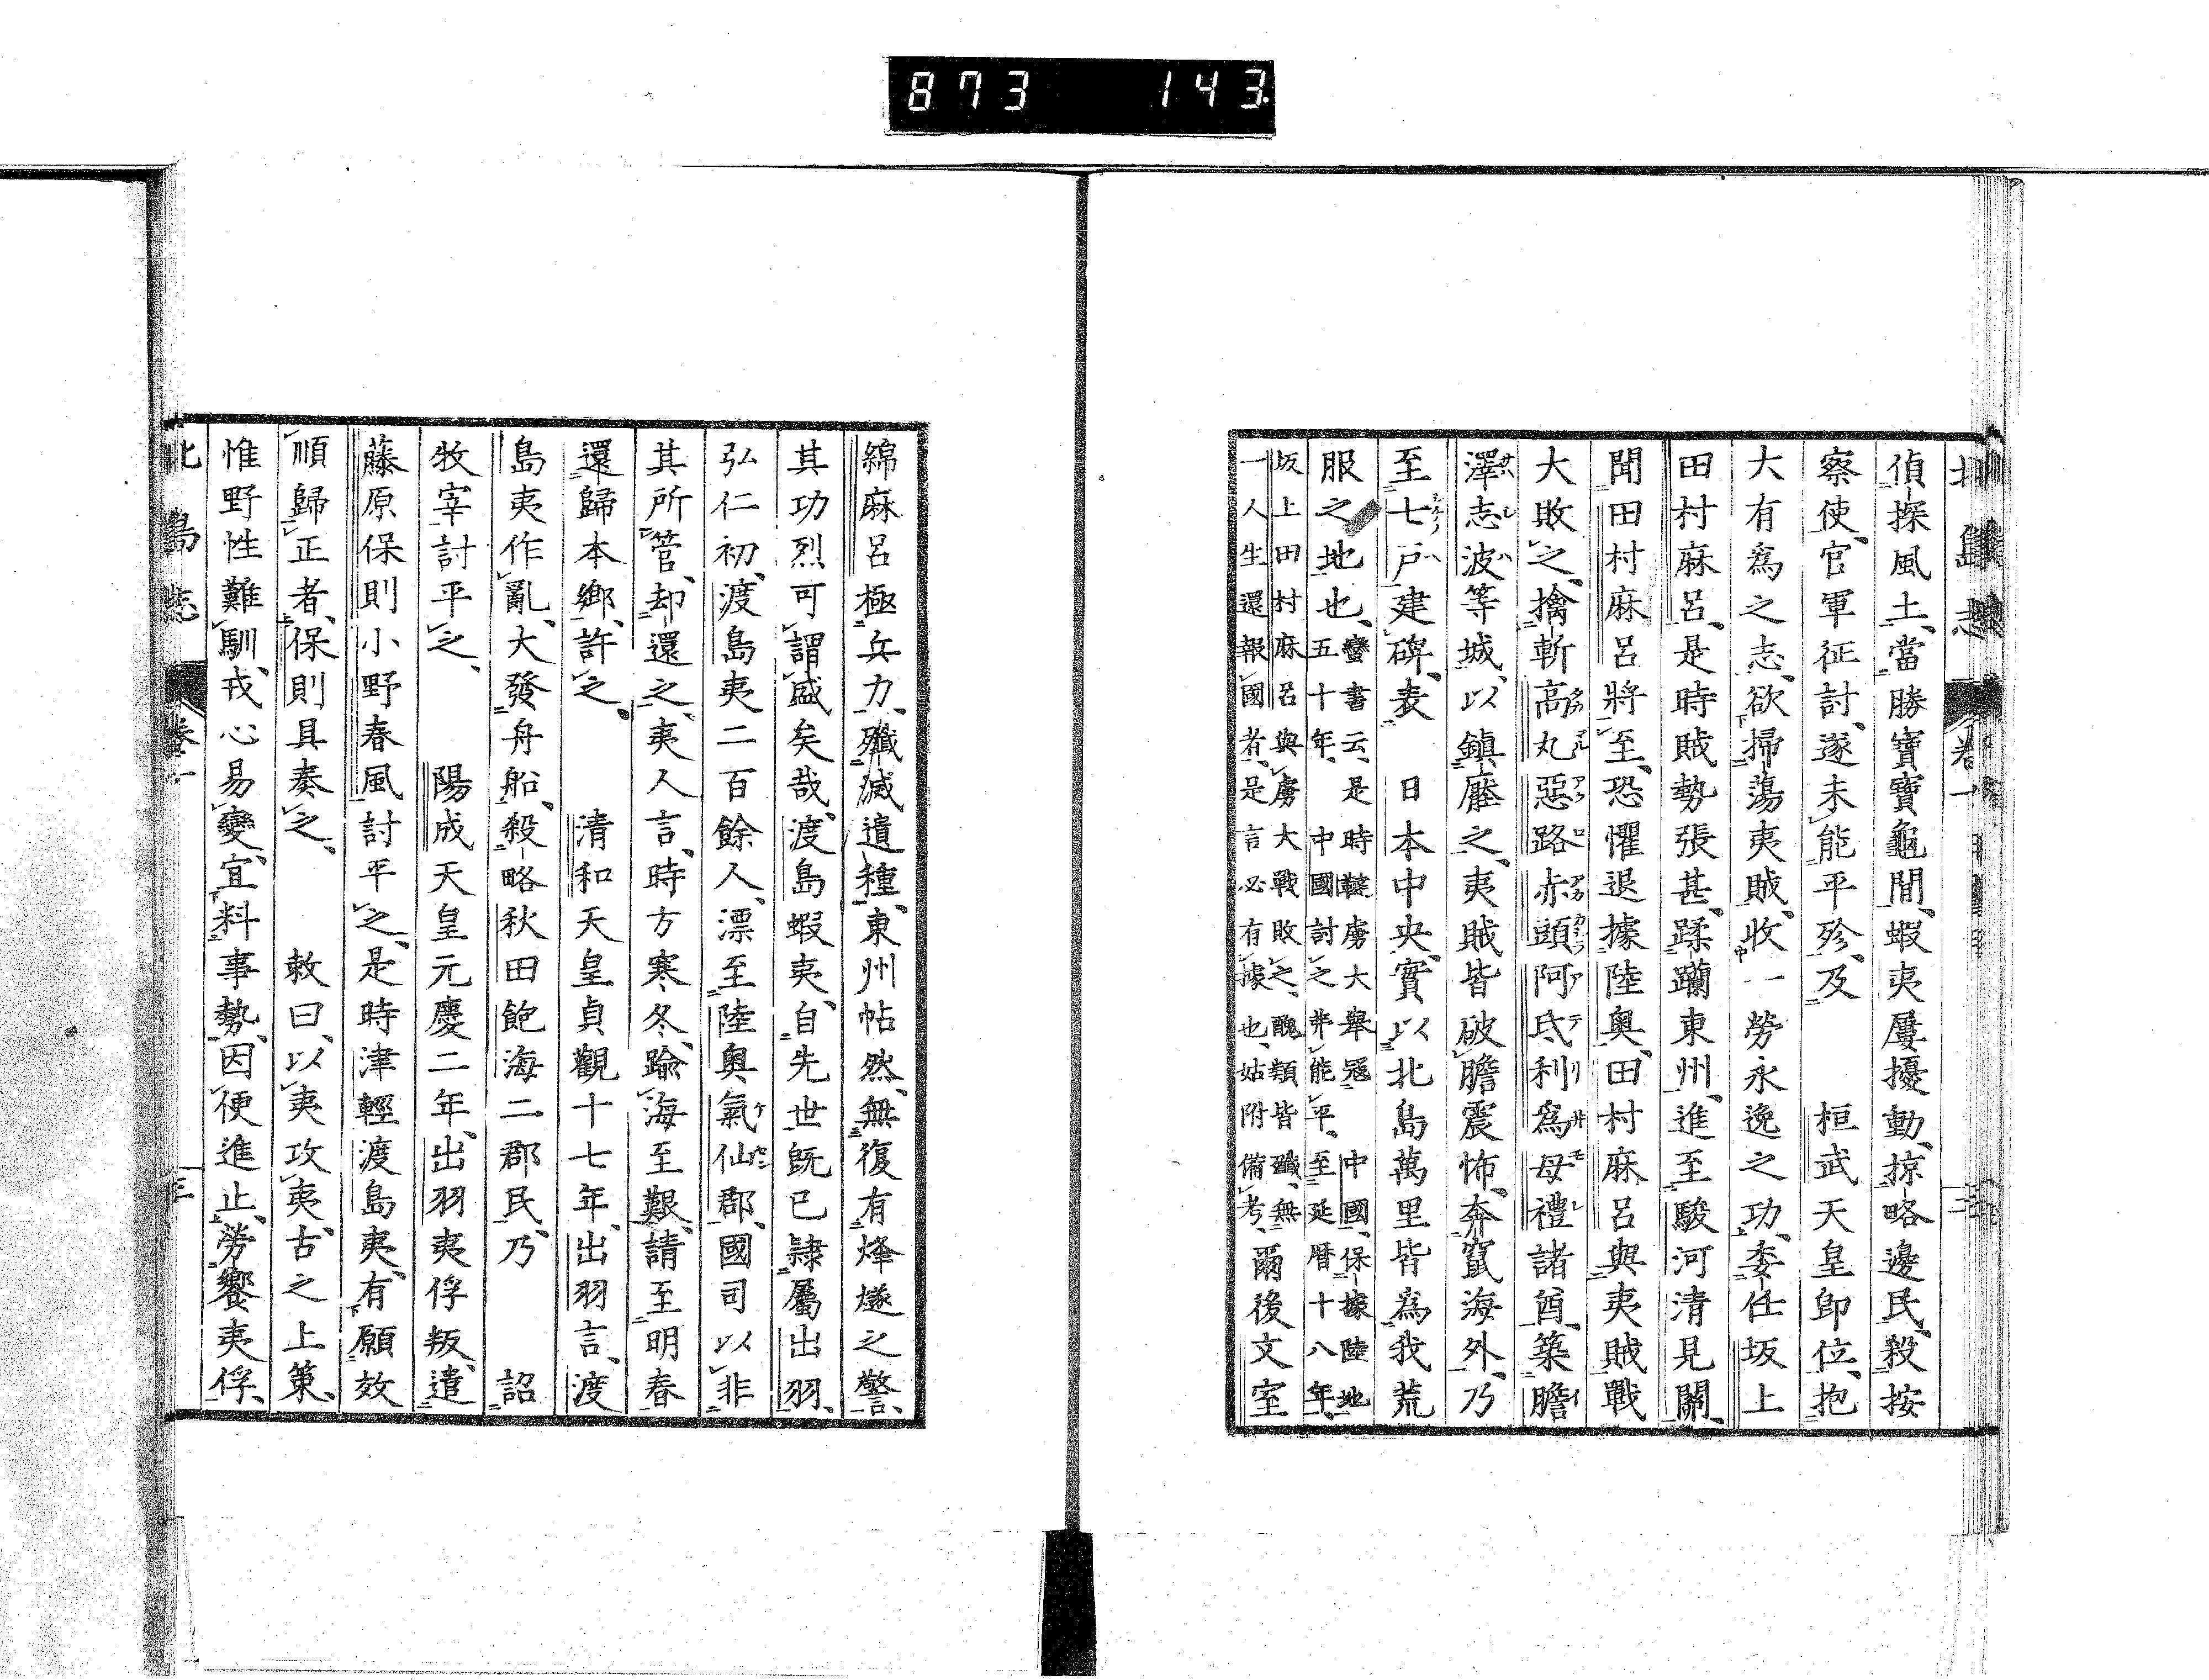 873 143.
北島志 卷一 二
偵探風土、當勝寶寶龜間、蝦夷屢擾動、掠略邊民、殺按
察使、官軍征討、遂未能平殄、及 桓武天皇卽位、抱
大有爲之志、欲掃蕩夷賊、收一勞永逸之功、委任坂上
田村麻呂、是時賊勢張甚、蹂躪東州、進至駿河清見關、
聞田村麻呂將至、恐懼退據陸奧、田村麻呂與夷賊戰
大敗之、擒斬高丸惡路赤頭阿氐利爲母禮諸酋、築膽
澤志波等城、以鎮壓之、夷賊皆破膽震怖、奔竄海外、乃
至七戸建碑、表 日本中央、實以北島萬里皆爲我荒
服之地也、蠻書云、是時韃虜大舉冠 中國、保據陸地
五十年、中國討之弗能平、至延曆十八年、
坂上田村麻呂與虜大戰敗之、醜類皆殲、無
一人生還報國者、是言必有據也、姑附備考、爾後文室
綿麻呂極兵力、殲滅遺種、東州帖然、無復有烽燧之警、
其功烈可謂盛矣哉、渡島蝦夷、自先世旣已隷屬出羽、
弘仁初、渡島夷二百餘人、漂至陸奧氣仙郡、國司以非
其所管、却還之、夷人言、時方寒冬、踰海至艱、請至明春
還歸本鄉、許之、 清和天皇貞觀十七年、出羽言、渡
島夷作亂、大發舟船、殺略秋田飽海二郡民、乃 詔
牧宰討平之、 陽成天皇元慶二年、出羽夷俘叛、遣
藤原保則小野春風討平之、是時津輕渡島夷、有願效
順歸正者、保則具奏之、 敕曰、以夷攻夷、古之上策、
惟野性難馴、戎心易變、宜料事勢、因便進止、勞饗夷俘、
北島志 卷一 三